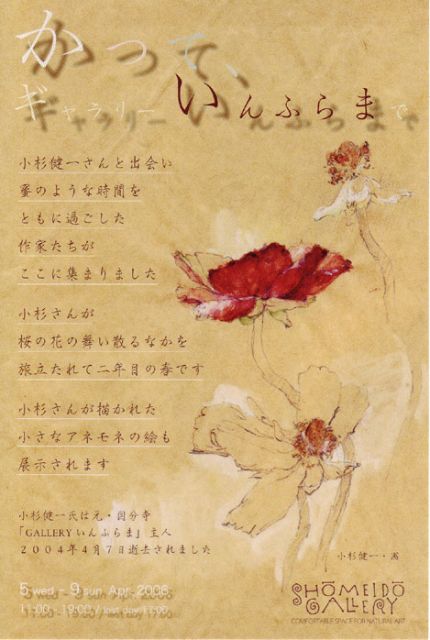 かつて、
ギャラリーいんふらまで
小杉健一さんと出会い
蜜のような時間を
ともに過ごした
作家たちが
ここに集まりました
小杉さんが
桜の花の舞い散るなかを
旅立たれて二年目の春です
小杉さんが描かれた
小さなアネモネの絵も
展示されます
小杉健一氏は元・国分寺
「GALLERYいんふらま」主人
２００４年４月７日逝去されました
小杉健一・画
5 wed - 9 sun Apr. 2006
11:00 - 19:00 / last day 17:00
SHŌMEIDŌ
GALLERY
COMFORTABLE SPACE FOR NATURAL ART